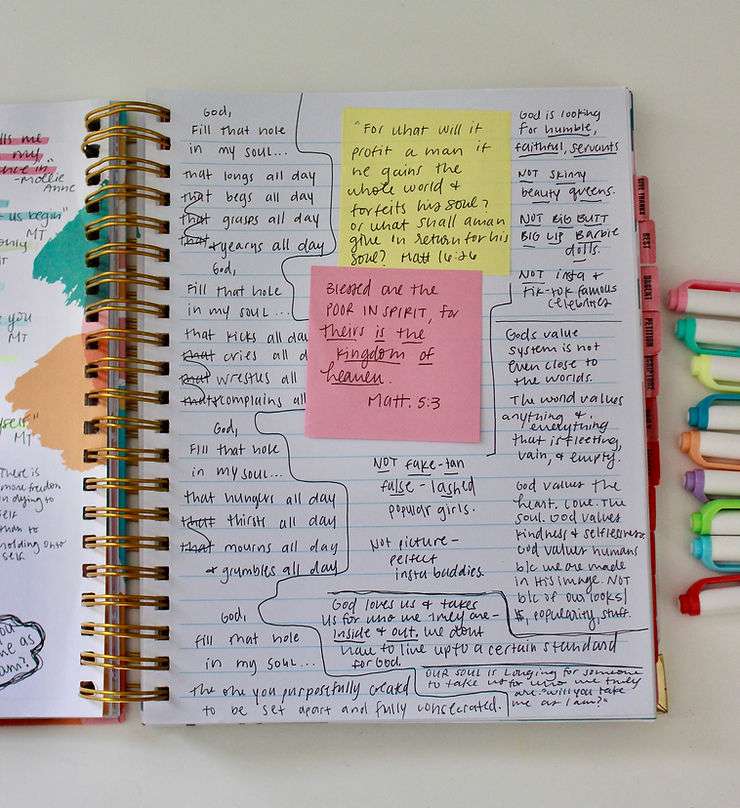 lls me
my
ance in"
-Mollie
Anne
us begin"
MT
only
MT
e you
MT
yself"
MT
There is
more freedom
in dying to
self
than to
holding onto
self
out
me as
I am?
God,
Fill that hole
in my soul...
that longs all day
that begs all day
that grasps all day
that & yearns all day
God,
Fill that hole
in my soul...
that kicks all day
that cries all d
that wrestles all
that & complains all
God,
Fill that hole
in my soul...
that hungers all day
that thirsts all day
that mourns all day
& grumbles all day
God,
Fill that hole
in my soul...
The one you purposfully created
to be set apart and fully consecrated.
"For what will it
profit a man if
he gains the
whole world &
forfeits his soul?
or what shall a man
give in return for his
soul? Matt 16:26
Blessed are the
POOR IN SPIRIT, for
theirs is the
kingdom of
heaven.
Matt. 5:3
NOT fake-tan
false-lashed
popular girls.
Not picture-
perfect
insta baddies.
God loves us & takes
us for who we truly are-
inside & out. We dont
have to live up to a certain standard
for God.
God is looking
for humble,
faithful, servants
NOT skinny
beauty queens.
NOT BIG BUTT
BIG LIP Barbie
dolls.
NOT insta &
tik-tok famous
celebrities
Gods value
system is not
even close to
the worlds.
The world values
anything &
everything
that is fleeting,
vain, & empty.
God values the
heart. Love. The
soul. God values
kindness & selflessness
God values humans
b/c we are made
in His image. NOT
b/c of our looks/
$, popularity, stuff.
OUR SOUL is longing for someone
to take us for who we truly
are. "Will you take
me as I am?"
GIVE THANKS
REST
PETITION
SCRIPTURE